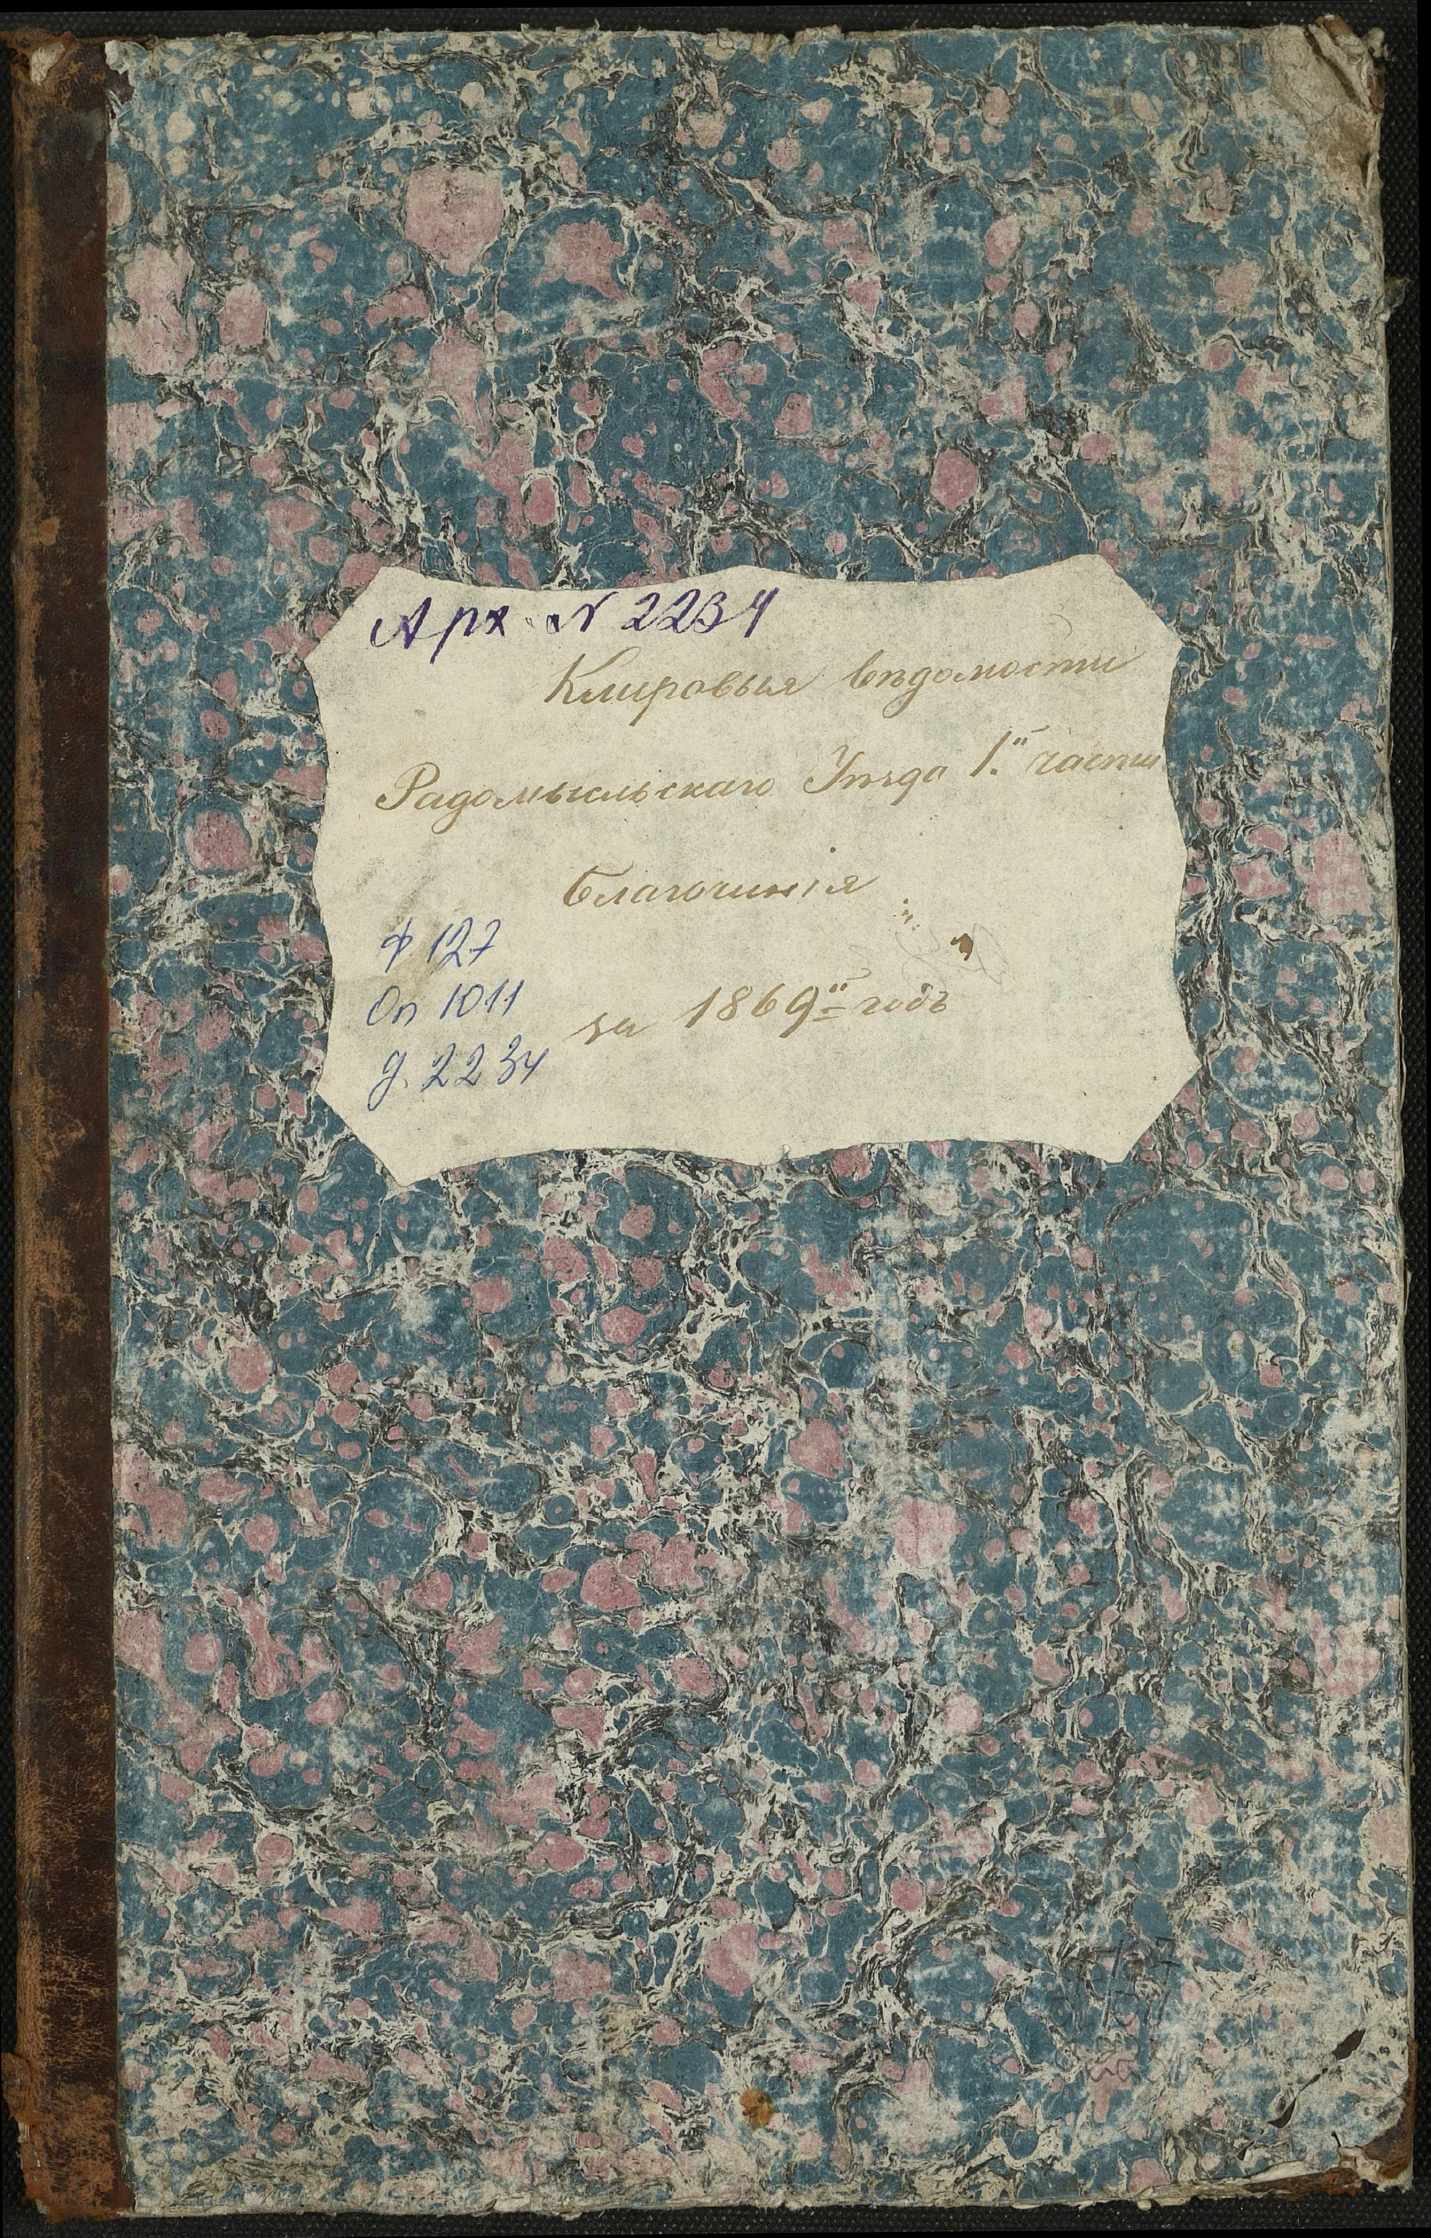 Арх. № 2234
Клировыя вѣдомости
Радомысльскаго Уѣзда 1.й части
Благочинія
за 1869й годъ
ф 127
Оп 1011
д. 2234